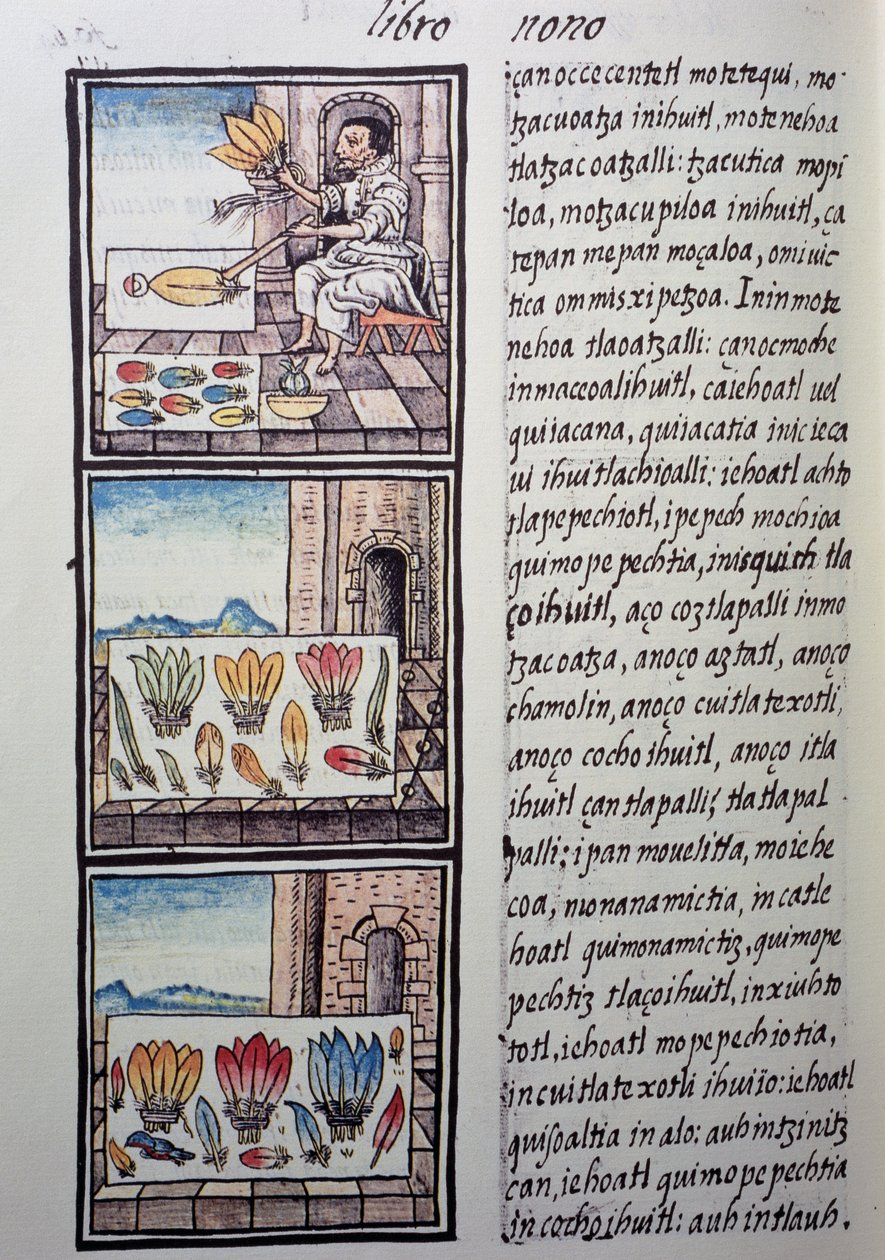 libro nono
çan occecentetl motetequi, mo
tzacuoatza inihuitl, motenehoa
tlatzacoatzalli: tzacutica mopi
loa, motzacupiloa inihuitl, ça
tepan mepan moçaloa, omiuic
tica ommixipetzoa. Ininmote
nehoa tlaoatzalli: çanocmoche
inmaceoalihuitl, caiehoatl uel
quiiacana, quiiacatia inicieca
ui ihuitlachioalli: iehoatl achto
tlapepechiotl, ipepech mochioa
quimopepechtia, inisquich tla
çoihuitl, aço coztlapalli inmo
tzacoatza, anoço aztatl, anoço
chamolin, anoço cuitlatexotli,
anoço cochoihuitl, anoço itla
ihuitl çantlapalli, tlatlapal
palli: ipan mouelitla, moiehe
coa, monanamictia, in catle
hoatl quimonamictiz, quimope
pechtiz tlaçoihuitl, inxiuhto
totl, iehoatl mopepechiotia,
incuitlatexotli ihuiïo: iehoatl
quisoaltia in alo: auh intzinitz
can, iehoatl quimopepechtia
in cochoihuitl: auh intlauh.